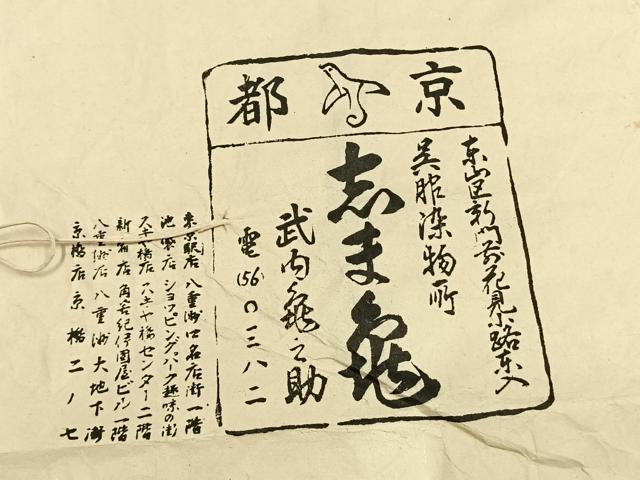 京都
東山区新門前花見小路東入
呉服染物所
志ま亀
武内亀之助
電(56)〇三八二
東京駅店 八重洲口名店街一階
池袋店 ショッピングパーク趣味の街
スキヤ橋店 スキヤ橋センター二階
新宿店 角筈紀伊國屋ビル一階
八重洲店 八重洲大地下街
京橋店 京橋二ノ七